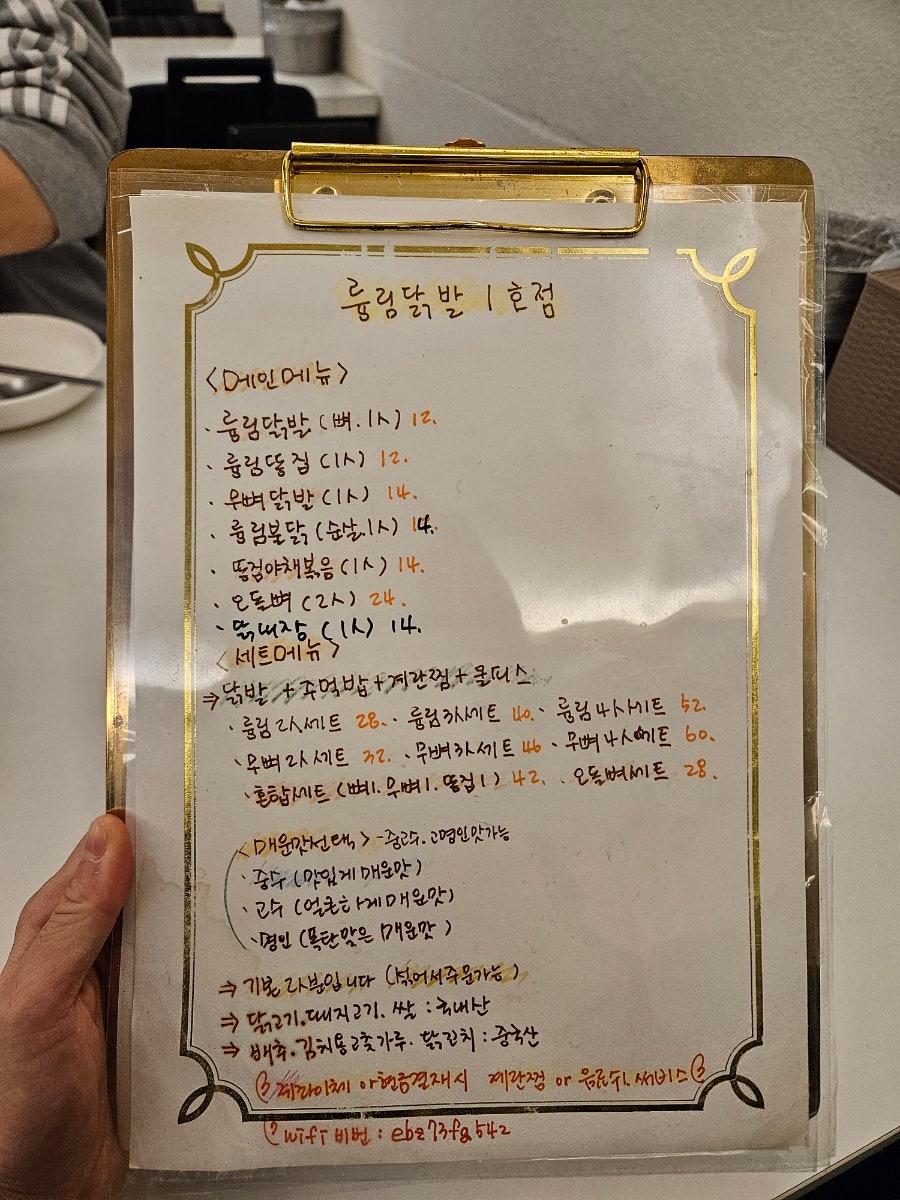 륨림닭발 1호점
<메인메뉴>
· 륨림닭발 (뼈.1人) 12.
· 륨림똥집 (1人) 12.
· 무뼈닭발 (1人) 14.
· 륨림불닭 (순살.1人) 14.
· 똥집야채볶음 (1人) 14.
· 오돌뼈 (2人) 24.
· 닭내장 (1人) 14.
<세트메뉴>
⇒ 닭발 + 주먹밥 + 계란찜 + 쿨피스
· 륨림 2人세트 28. · 륨림 3人세트 40. · 륨림 4人세트 52.
· 무뼈 2人세트 32. · 무뼈 3人세트 46 · 무뼈 4人세트 60.
· 혼합세트 (뼈1. 무뼈1. 똥집1) 42. · 오돌뼈세트 28.
<매운맛선택> -중고수. 고명인맛가능
· 중수 (맛있게 매운맛)
· 고수 (얼큰하게 매운맛)
· 명인 (폭탄맞은 매운맛)
⇒ 기본 2人분입니다 (섞어서주문가능)
⇒ 닭고기.돼지고기. 쌀 : 국내산
⇒ 배추.김치용고춧가루. 닭근위 : 중국산
계좌이체 or 현금결제시 계란찜 or 음료수1 써비스
wifi 비번 : ebe73fg542